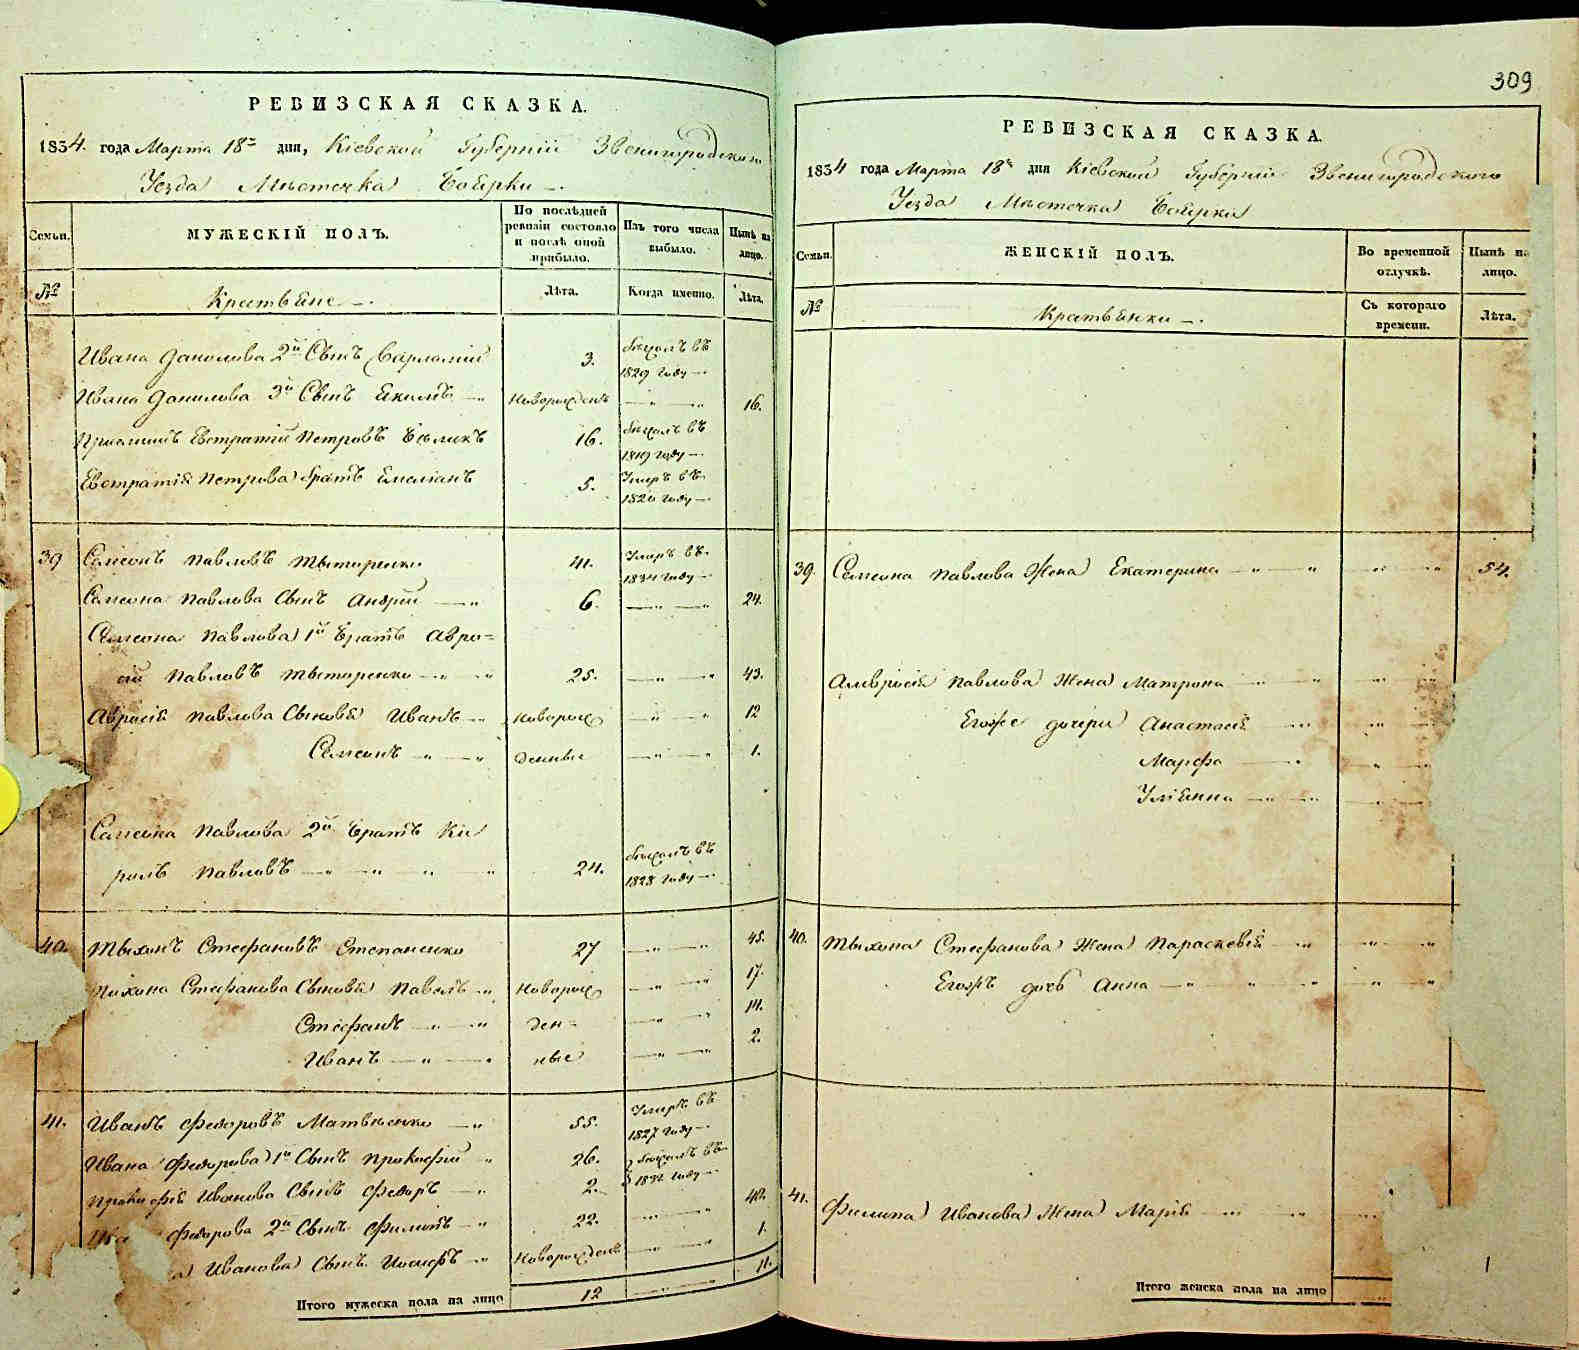 РЕВИЗСКАЯ СКАЗКА.
1834. года Марта 18го дня, Кіевской Губерніи Звенигородскаго
Уезда Мѣстечка Боярки
Семьи.
МУЖЕСКІЙ ПОЛЪ.
По послѣдней ревизіи состояло и послѣ оной прибыло.
Изъ того числа выбыло.
Нынѣ на лицо.
№
Крестьяне
Лѣта.
Когда именно.
Лѣта.
Ивана Данилова 2й Сынъ Варламій 3. бѣжалъ въ 1829 году
Ивана Данилова 3й Сынъ Екимъ новорожденъ 16.
Евстратій Петровъ 16. бѣжалъ въ 1819 году
Евстратія Петрова братъ Емеліанъ 5. Умеръ въ 1820 году
39 Самсонъ Павловъ Тытаренко 41. Умеръ въ 1834 году
Самсона Павлова Сынъ Андрей 6. 24.
Самсона Павлова 1й Братъ Авро=
сій Павловъ Тытаренко 25. 43.
Авросія Павлова Сыновья Иванъ новорож 12
Самсонъ денные 1.
Самсона Павлова 2й Братъ Ки
рилъ Павловъ 24. бѣжалъ въ 1828 году
40. Тыхонъ Стефановъ Степаненко 27 45.
Тихона Стефанова Сыновья Павелъ новорож 17.
Стефанъ ден= 14.
Иванъ ные 2.
41. Иванъ Федоровъ Матвѣенко 55. Умеръ въ 1827 году
Ивана Федорова 1й Сынъ Прокофій 26. бѣжалъ въ
Прокофія Иванова Сынъ Федоръ 2. году
Федорова 2й Сынъ Филипъ 22. 40.
Иванова Сынъ Иосифъ новорожденъ 1.
Итого мужеска пола на лицо 12 11.
309
РЕВИЗСКАЯ СКАЗКА.
1834 года Марта 18го дня Кіевской Губерніи Звенигородскаго
Уезда Мѣстечка Боярки
Семьи.
ЖЕНСКІЙ ПОЛЪ.
Во временной отлучкѣ.
Нынѣ на лицо.
№
Крестьянки
Съ котораго времени.
Лѣта.
39. Самсона Павлова Жена Екатерина 54.
Амвросія Павлова Жена Матрона
Егоже дочери Анастасія
Марфа
Уліянна
40. Тыхона Стефанова Жена Параскевія
Егожъ дочь Анна
41. Филипа Иванова Жена Марія
Итого женска пола на лицо